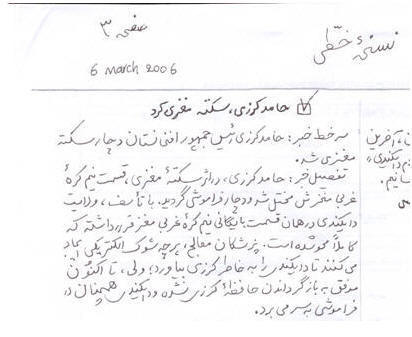 صفحهٔ ۳
نسخهٔ خطّی
6 March 2006
حامد کرزی، سکته مغزی کرد
سرخط خبر: حامد کرزی رئیس جمهور افغانستان دچار سکته
مغزی شد.
تفصیل خبر: حامد کرزی، در اثر سکتهٔ مغزی، قسمت نیم کرهٔ
غربی مغزش مختل شد و دچار فراموشی گردید. با تأسف، ولایت
دایکندی در همان قسمت بایگانی نیم کرهٔ غربی مغز قرار داشته که
کاملاً محو شده است. پزشکان معالج، هر چه شوک الکتریکی ایجاد
می کنند تا دایکندی را به خاطر کرزی بیاورد؛ ولی، تا اکنون
موفق به بازگرداندن حافظهٔ کرزی نشده و دایکندی همچنان در
فراموشی به سر می برد.